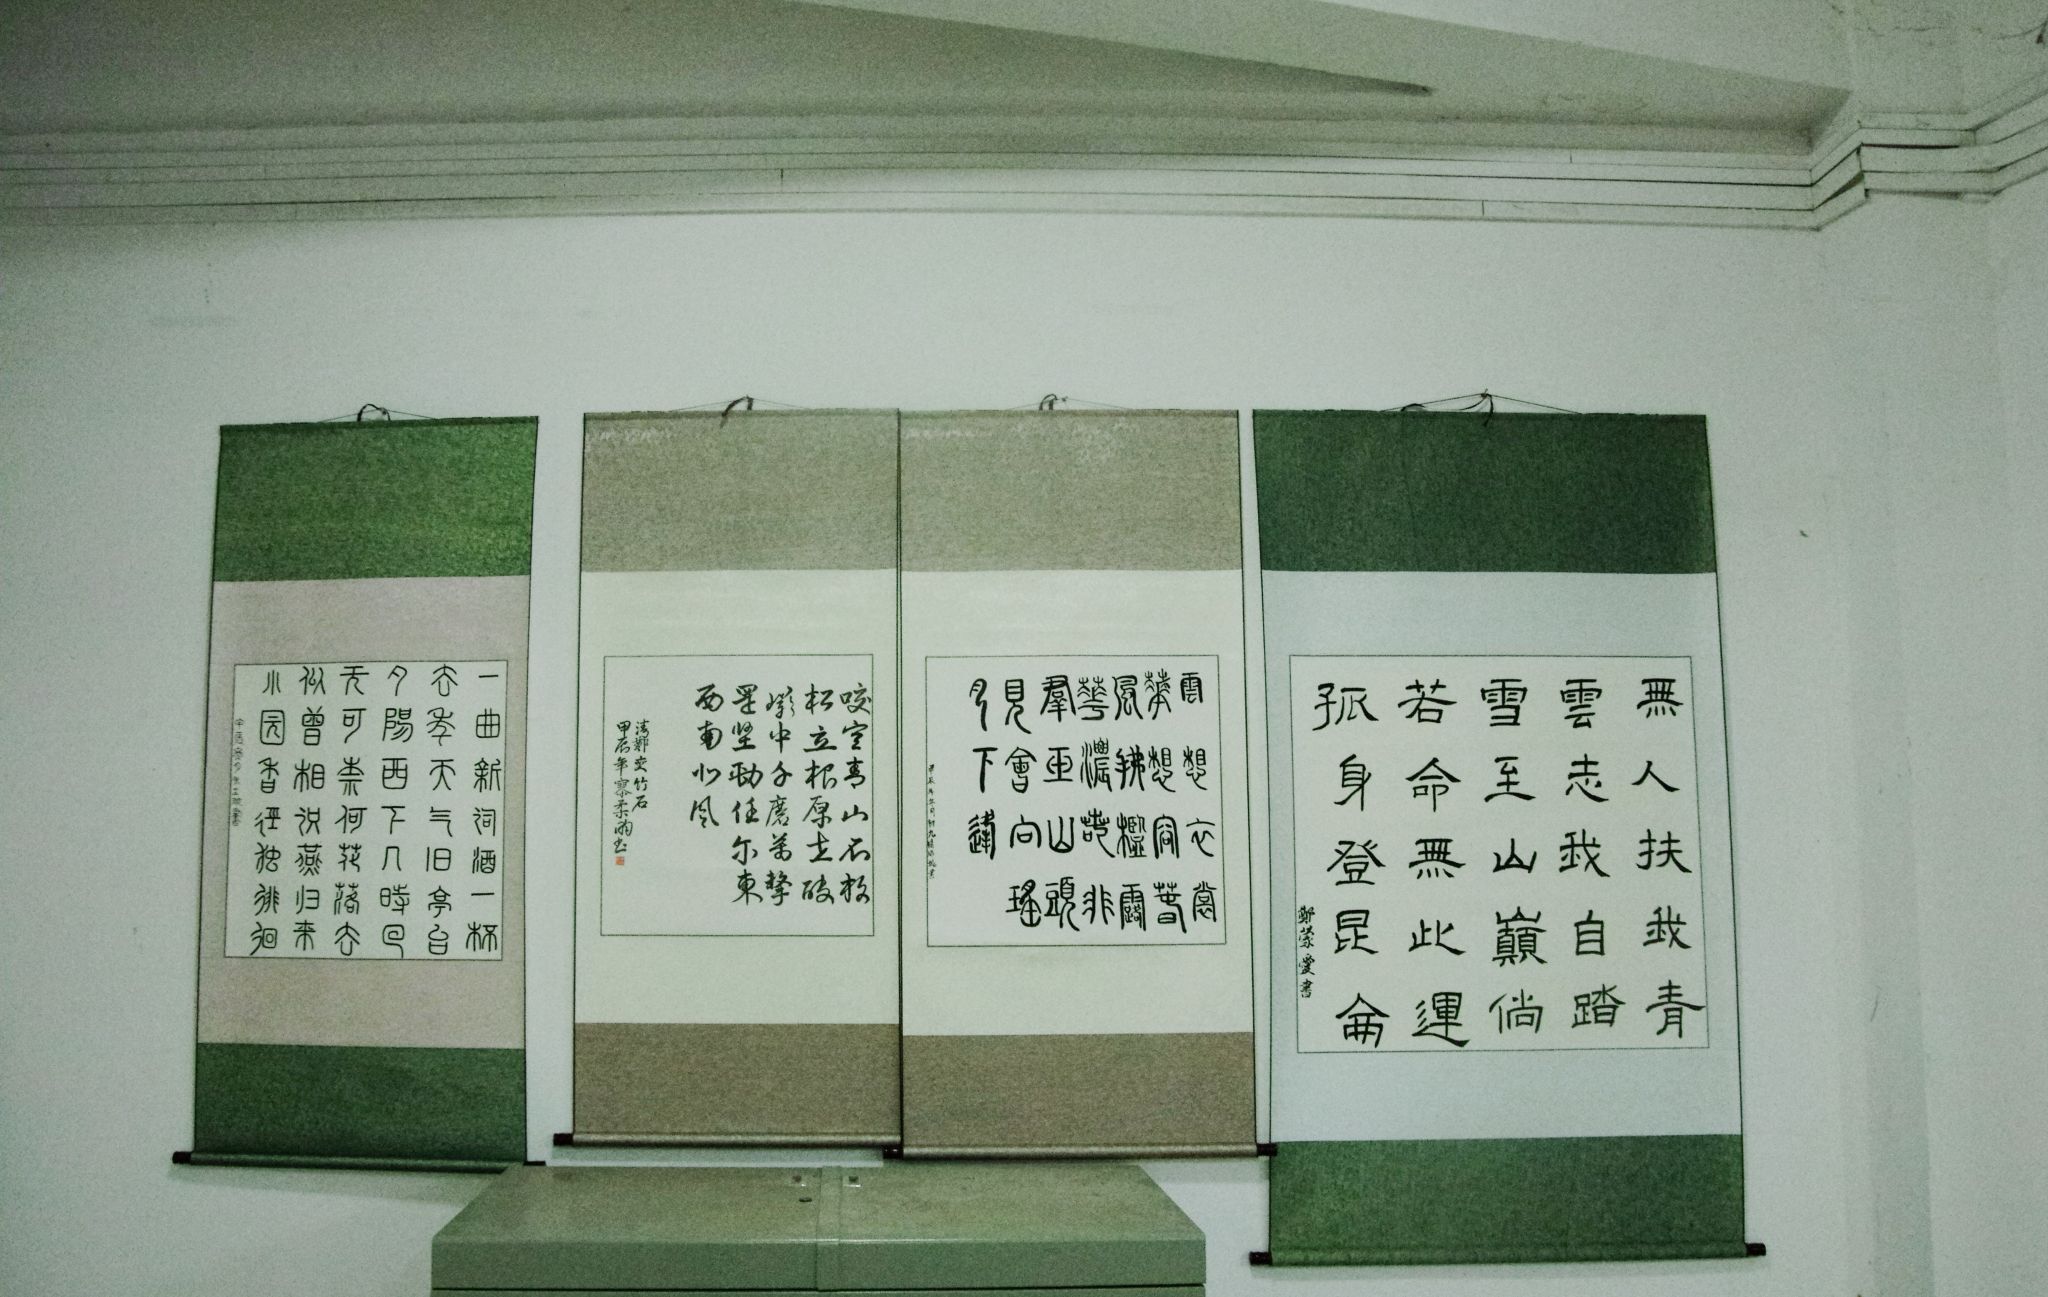 無人扶我青
雲志我自踏
雪至山巔倘
若命無此運
孤身登昆侖
鄭蒙愛書
雲想衣裳
華想容春
風拂檻露
華濃若非
羣玉山頭
見會向瑤
月下逢
咬定青山不放
松立根原在破
巖中千磨萬擊
還堅勁任尔東
西南北风
清鄭燮竹石
甲辰年
一曲新词酒一杯
去年天气旧亭台
夕陽西下几時回
无可奈何花落去
似曾相识燕归来
小园香徑独徘徊